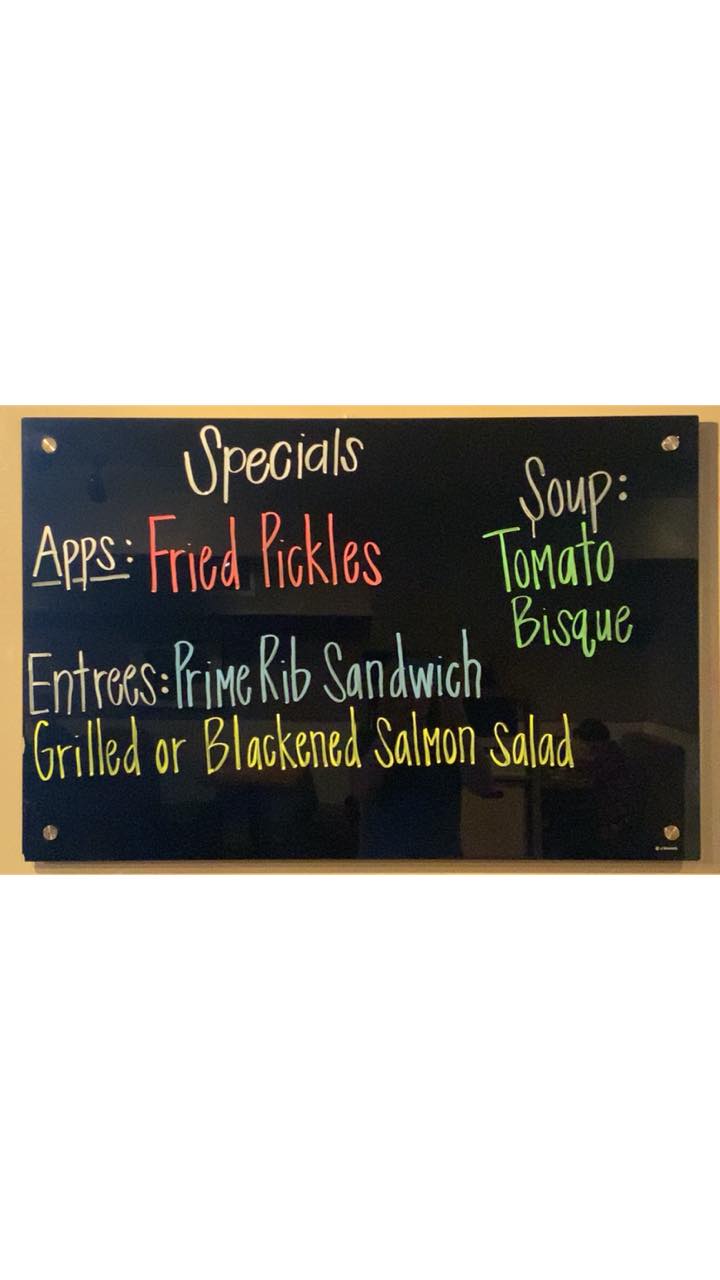 Specials
Apps: Fried Pickles
Entrees: Prime Rib Sandwich
Grilled or Blackened Salmon Salad
Soup:
Tomato
Bisque